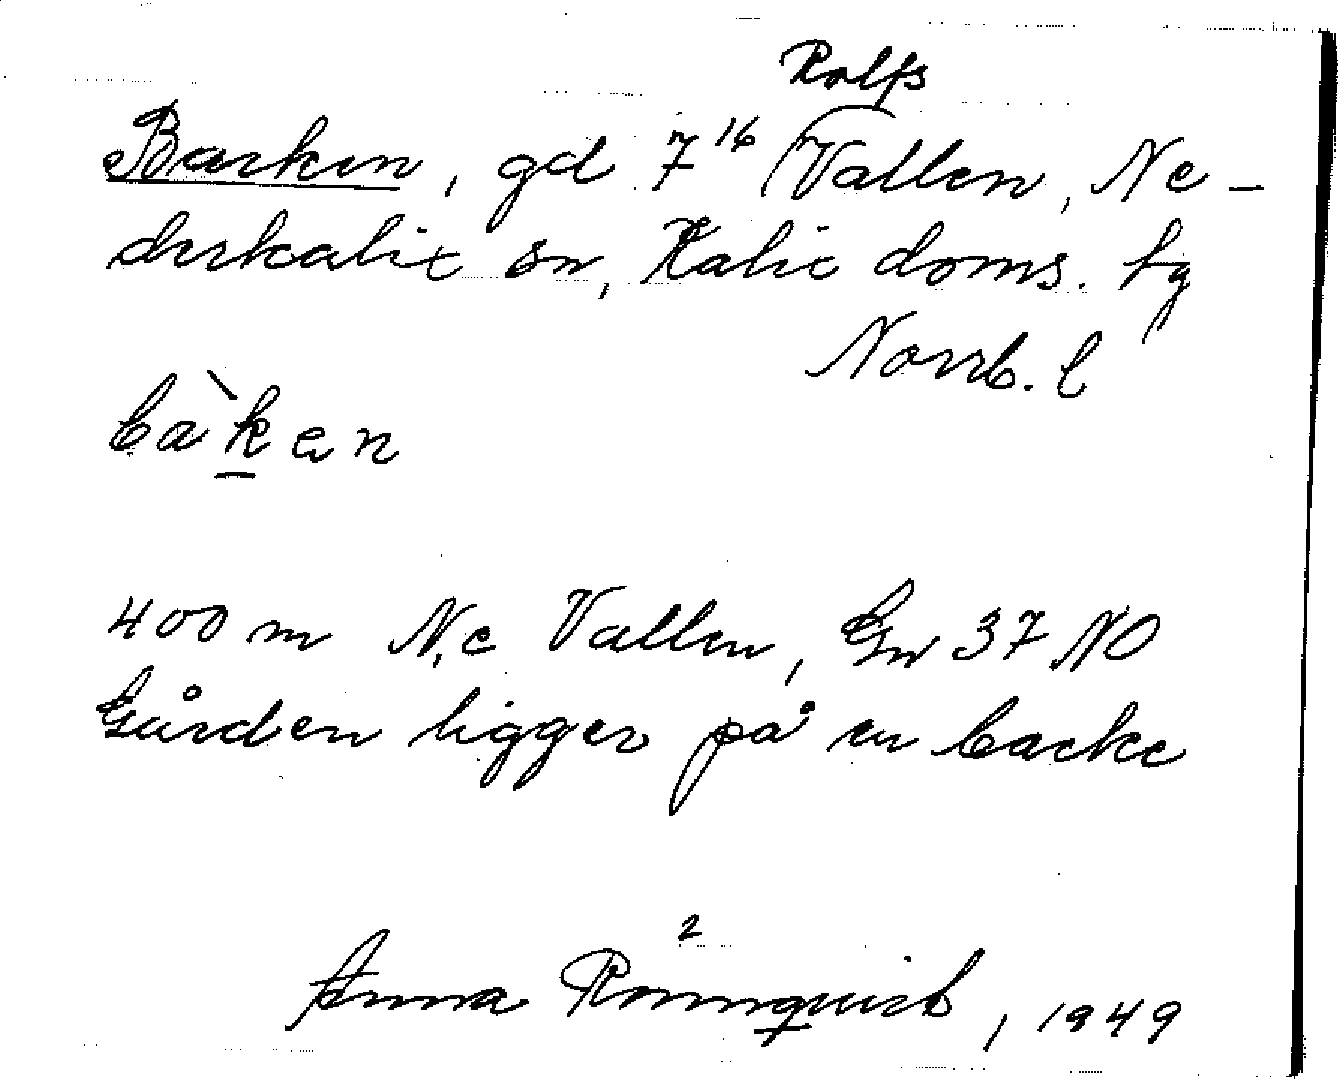 Rolfs
Backen, gd 7¹⁶ Vallen, Ne-
derkalix sn, Kalix doms. tg
Norrb. l
bàkan
400 m N,e Vallen, Gn 37 NO
Gården ligger på en backe
2
Anna Rönnquist, 1949